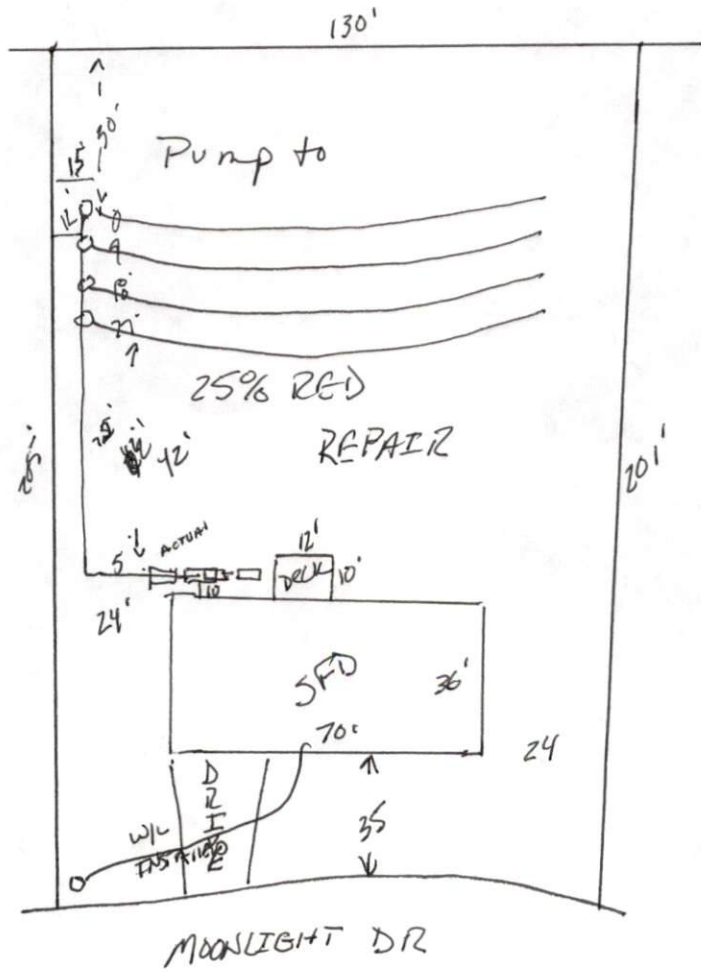 130'
30'
15'
Pump to
12'
0
9
18'
27'
25% RED
REPAIR
42'
201'
5'
ACTUAL
12'
DECK
10'
10
24'
SFD
36'
70'
24
DRIVE
35
W/L
INSTALLED
MOONLIGHT DR